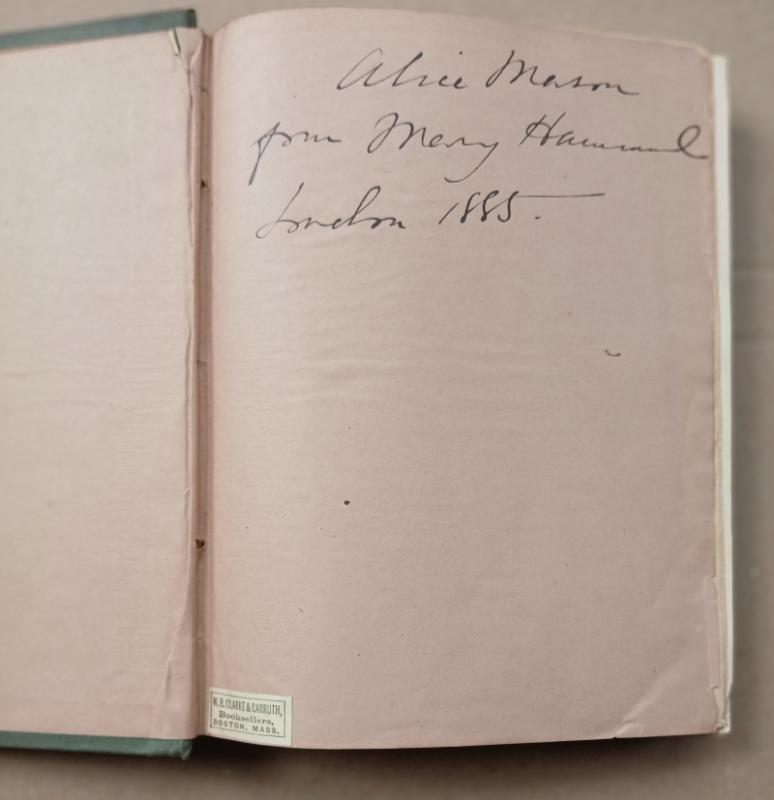 Alice Mason
from Mary Hammond
London 1885.
W. B. CLARKE & CARRUTH,
Booksellers,
BOSTON, MASS.